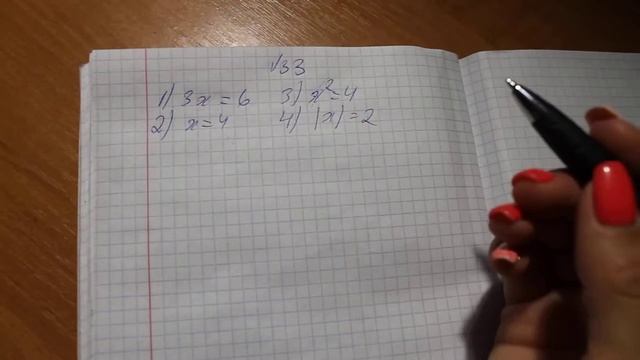 √33
1) 3x = 6 3) x² = 4
2) x = 4 4) |x| = 2